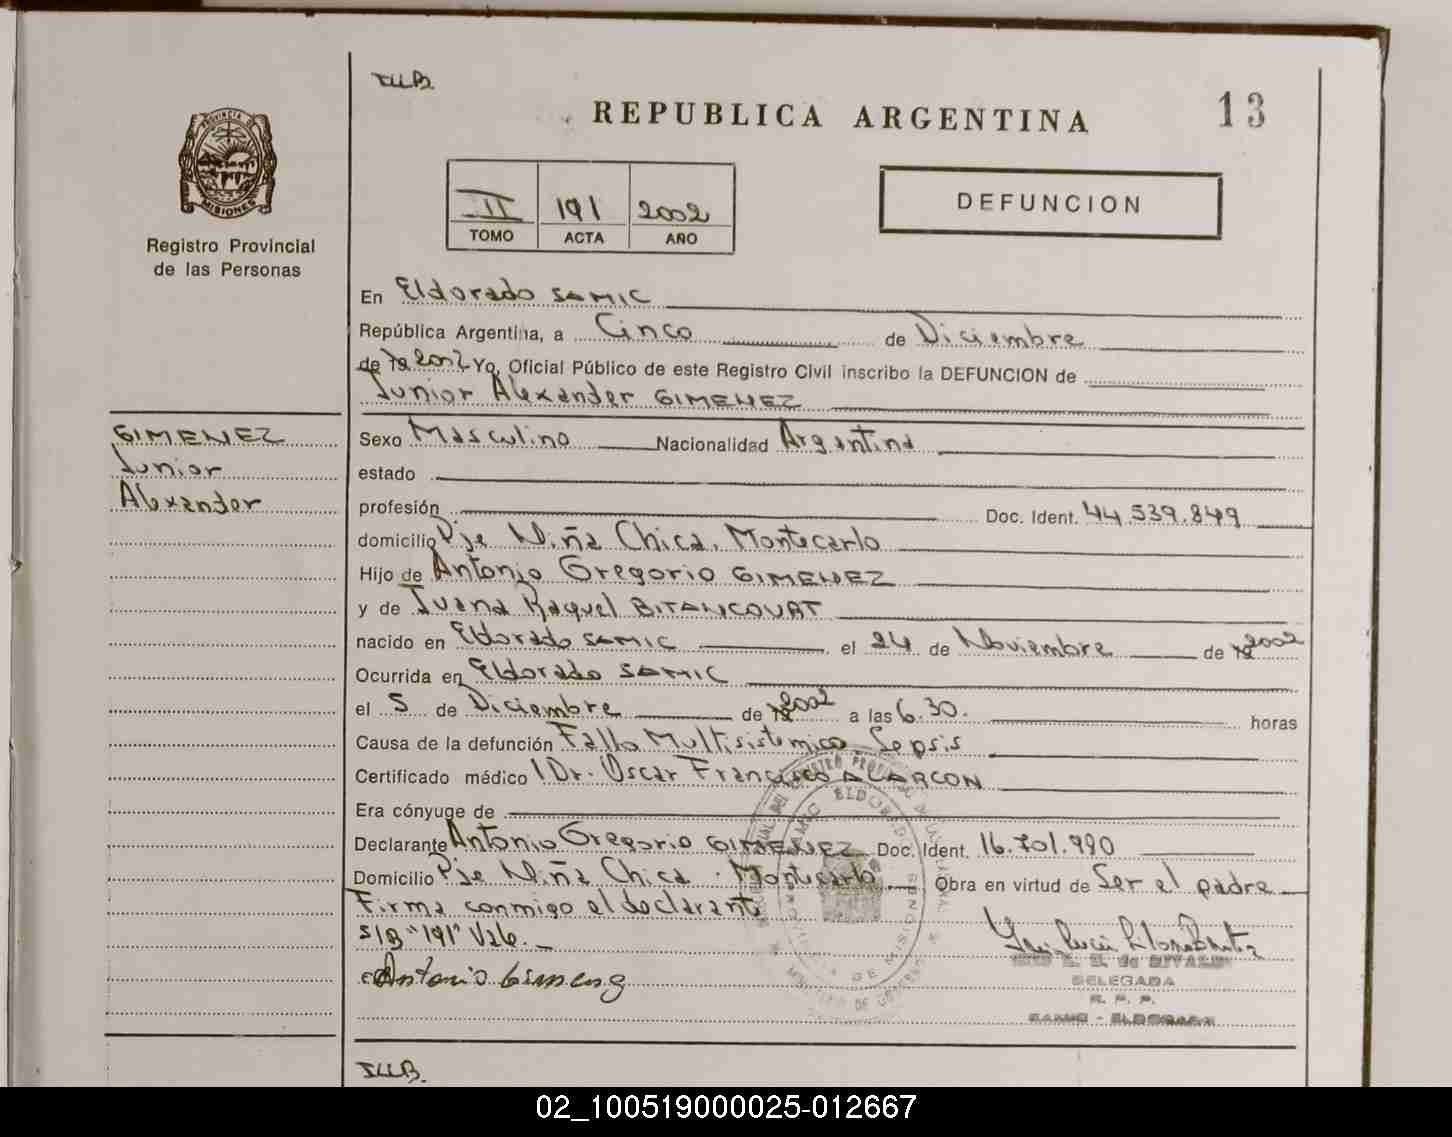 I.LL.B.
REPUBLICA ARGENTINA
13
PROVINCIA DE
MISIONES
Registro Provincial
de las Personas
II 191 2002
TOMO ACTA AÑO
DEFUNCION
En Eldorado SAMIC
República Argentina, a Cinco de Diciembre
de 19 2002 Yo, Oficial Público de este Registro Civil inscribo la DEFUNCION de
Junior Alexander GIMENEZ
GIMENEZ
Junior
Alexander
Sexo Masculino Nacionalidad Argentina
estado
profesión Doc. Ident. 44.539.849
domicilio Pje Niña Chica. Montecarlo
Hijo de Antonio Gregorio GIMENEZ
y de Juana Raquel BITANCOURT
nacido en Eldorado SAMIC el 24 de Noviembre de 19 2002
Ocurrida en Eldorado SAMIC
el 5 de Diciembre de 19 2002 a las 6.30. horas
Causa de la defunción Fallo Multisistemico Sepsis
Certificado médico Dr. Oscar Francisco ALARCON
Era cónyuge de
Declarante Antonio Gregorio GIMENEZ Doc. Ident. 16.701.990
Domicilio Pje Niña Chica. Montecarlo Obra en virtud de Ser el padre
Firma conmigo el declarante
S/B "191" Vale.
Antonio Gimenez
DELEGADA
R. P. P.
SAMIC - ELDORADO
I.LL.B.
02_100519000025-012667